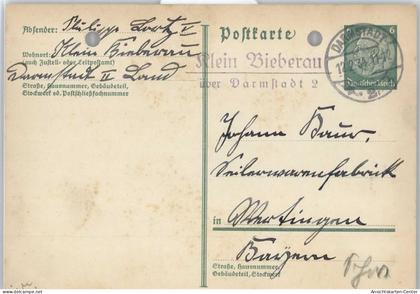 Absender: Philipp Lortz II
Wohnort: Klein Bieberau
(auch Zustell- oder Leitpostamt)
Darmstadt II Land
Straße, Hausnummer, Gebäudeteil,
Stockwerk od. Postschließfachnummer
Postkarte
Klein Bieberau
über Darmstadt 2
DARMSTADT
6
Deutsches Reich
Johann Baur,
Seilerwarenfabrick
in Wertingen
Bayern
Straße, Hausnummer,
Gebäudeteil, Stockwerk